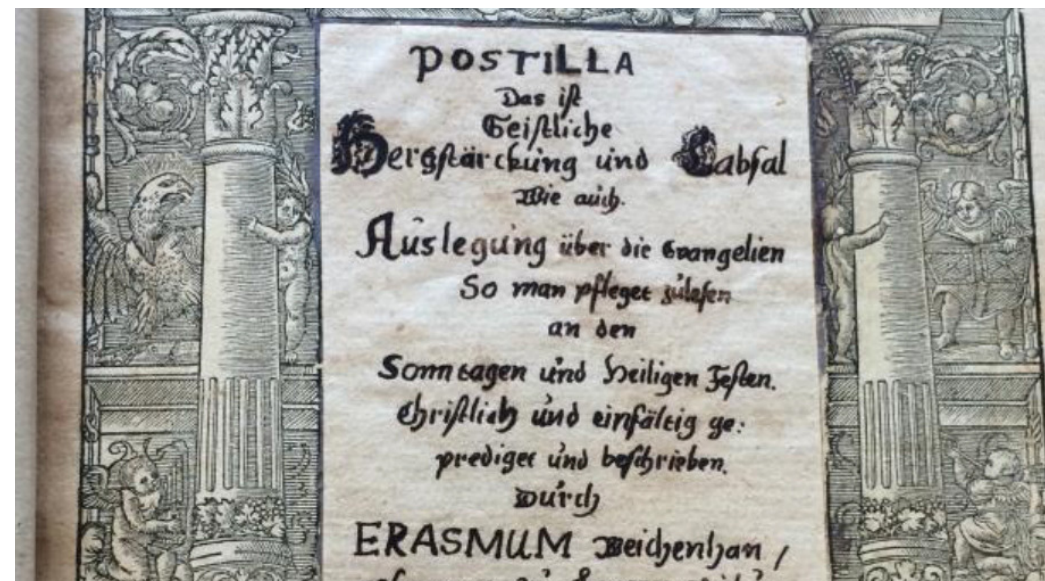 POSTILLA
Das ist
Geistliche
Hergstärckung und Labsal
Wie auch.
Auslegung über die Evangelien
So man pfleget zulesen
an den
Sonntagen und Heiligen Festen.
Christlich und einfältig ge:
prediget und beschrieben.
Durch
ERASMUM Weichenhan /